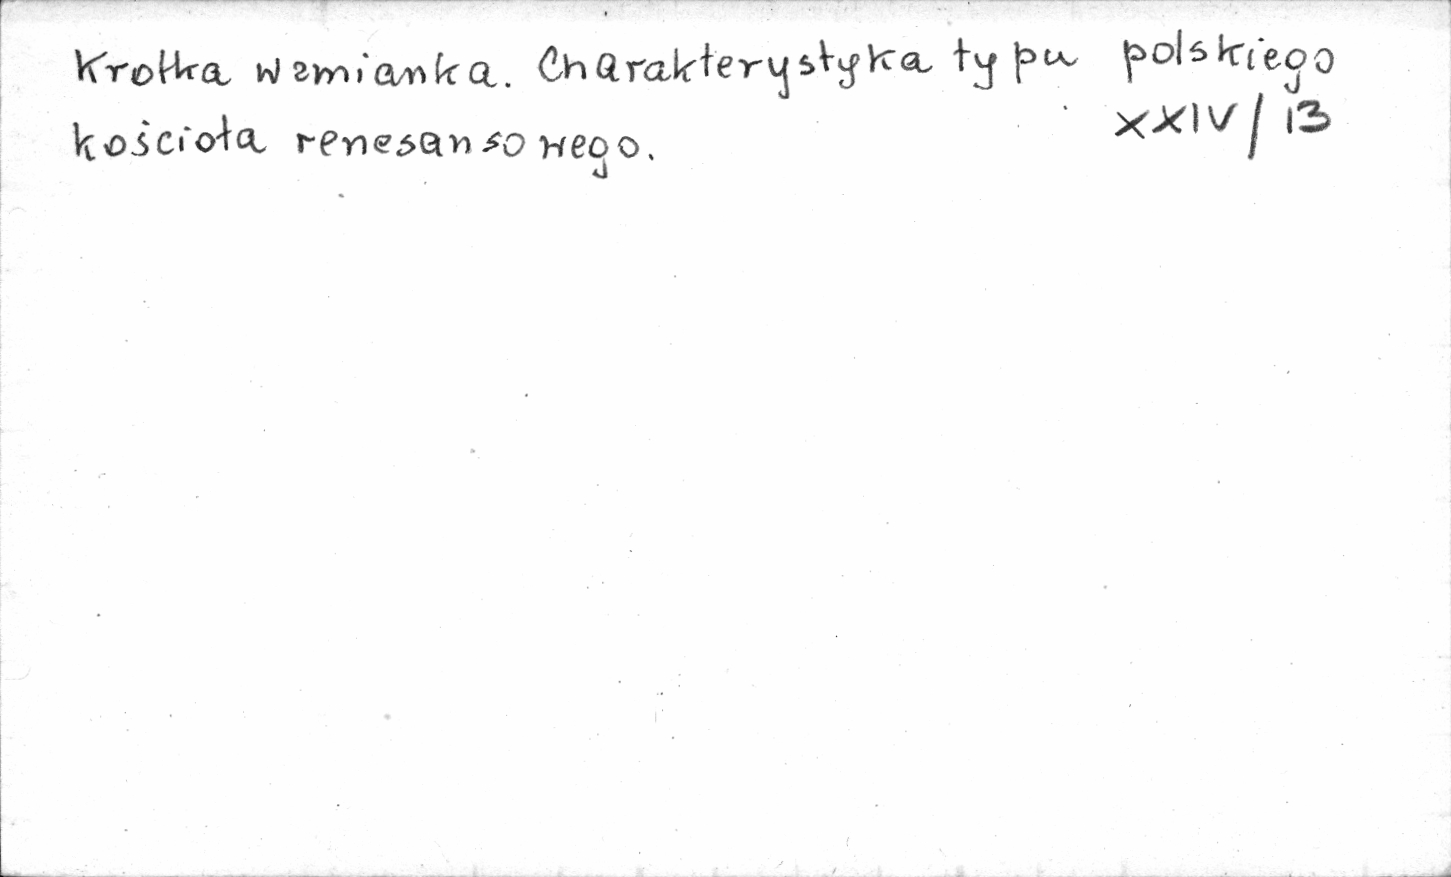 Krótka wzmianka. Charakterystyka typu polskiego
kościoła renesansowego.
XXIV/13